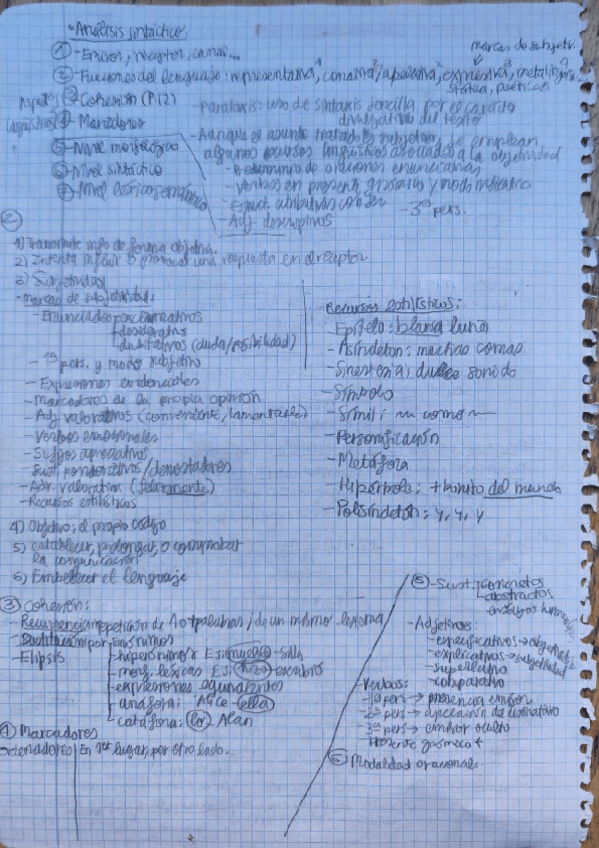 • Análisis sintáctico:
① - Emisor, receptor, canal...
marcas de subjetiv.
② - Funciones del lenguaje: representativa¹, conativa²/apelativa², expresiva³, metaling⁴
fática, poética⁶
③ - Cohesión (P.12)
④ - Marcadores
⑤ - Nivel morfológico
⑥ - Nivel sintáctico
⑦ - Nivel léxico semántico
- Parataxis: uso de sintaxis sencilla por el carácter
divulgativo del texto
- Aunque el asunto tratado es subjetivo, se emplean
algunos recursos lingüísticos asociados a la objetividad
- Predominio de oraciones enunciativas
- Verbos en presente gnómico y modo indicativo
- Estruct. atributivas con ser
- 3ª pers.
- Adj. descriptivos
②
1) Transmite info de forma objetiva.
2) Intenta influir o provocar una respuesta en el receptor
3) Subjetividad
- Marcas de subjetividad:
- Enunciados exclamativos
desiderativos
dubitativos (duda/posibilidad)
- 1ª pers. y modo subjetivo
- Expresiones
- Marcadores de la propia opinión
- Adj. valorativos (conveniente, lamentable)
- Verbos emocionales
- Sufijos apreciativos
- Sust. ponderativos/denostadores
- Adv. valorativos (felizmente)
- Recursos estilísticos
4) Objetivo: el propio código
5) establecer, prolongar, o comprobar
la comunicación
6) Embellecer el lenguaje
- Recursos estilísticos:
- Epíteto: blanca luna
- Asíndeton: muchas comas
- Sinestesia: dulce sonido
- Símbolo
- Símil: ~ como ~
- Personificación
- Metáfora
- Hipérbole: + bonito del mundo
- Polisíndeton: y, y, y
③ Cohesión:
- Recurrencia: repetición de 1 o + palabras, de un mismo lexema
- Sustitución: por sinónimos
- Elipsis
- hiperónimos Ej: mueble - silla
- morf. léxicas Ej: - escribió
- expresiones equivalentes
- anáfora: Alice - ella
- catáfora: los Alan
④ Marcadores
ordenadores | En 1er lugar, por otro lado..
⑤ - Sust. concretos
- abstractos
- Adjetivos:
- especificativos → objetividad
- explicativos → subjetividad
- superlativo
- comparativo
- Verbos:
- 1ª pers → presencia emisor
- 2ª pers → apelación al destinatario
- 3ª pers → emisor oculto
Presente gnómico +
⑥ Modalidad oracional.